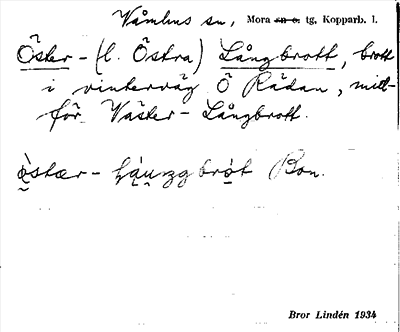 Våmhus sn, Mora sn o. tg, Kopparb. l.
Öster- (l. Östra) Långbrott, brott
i vinterväg Ö Rädan, mitt-
för Väster-Långbrott.
Bon.
Bror Lindén 1934